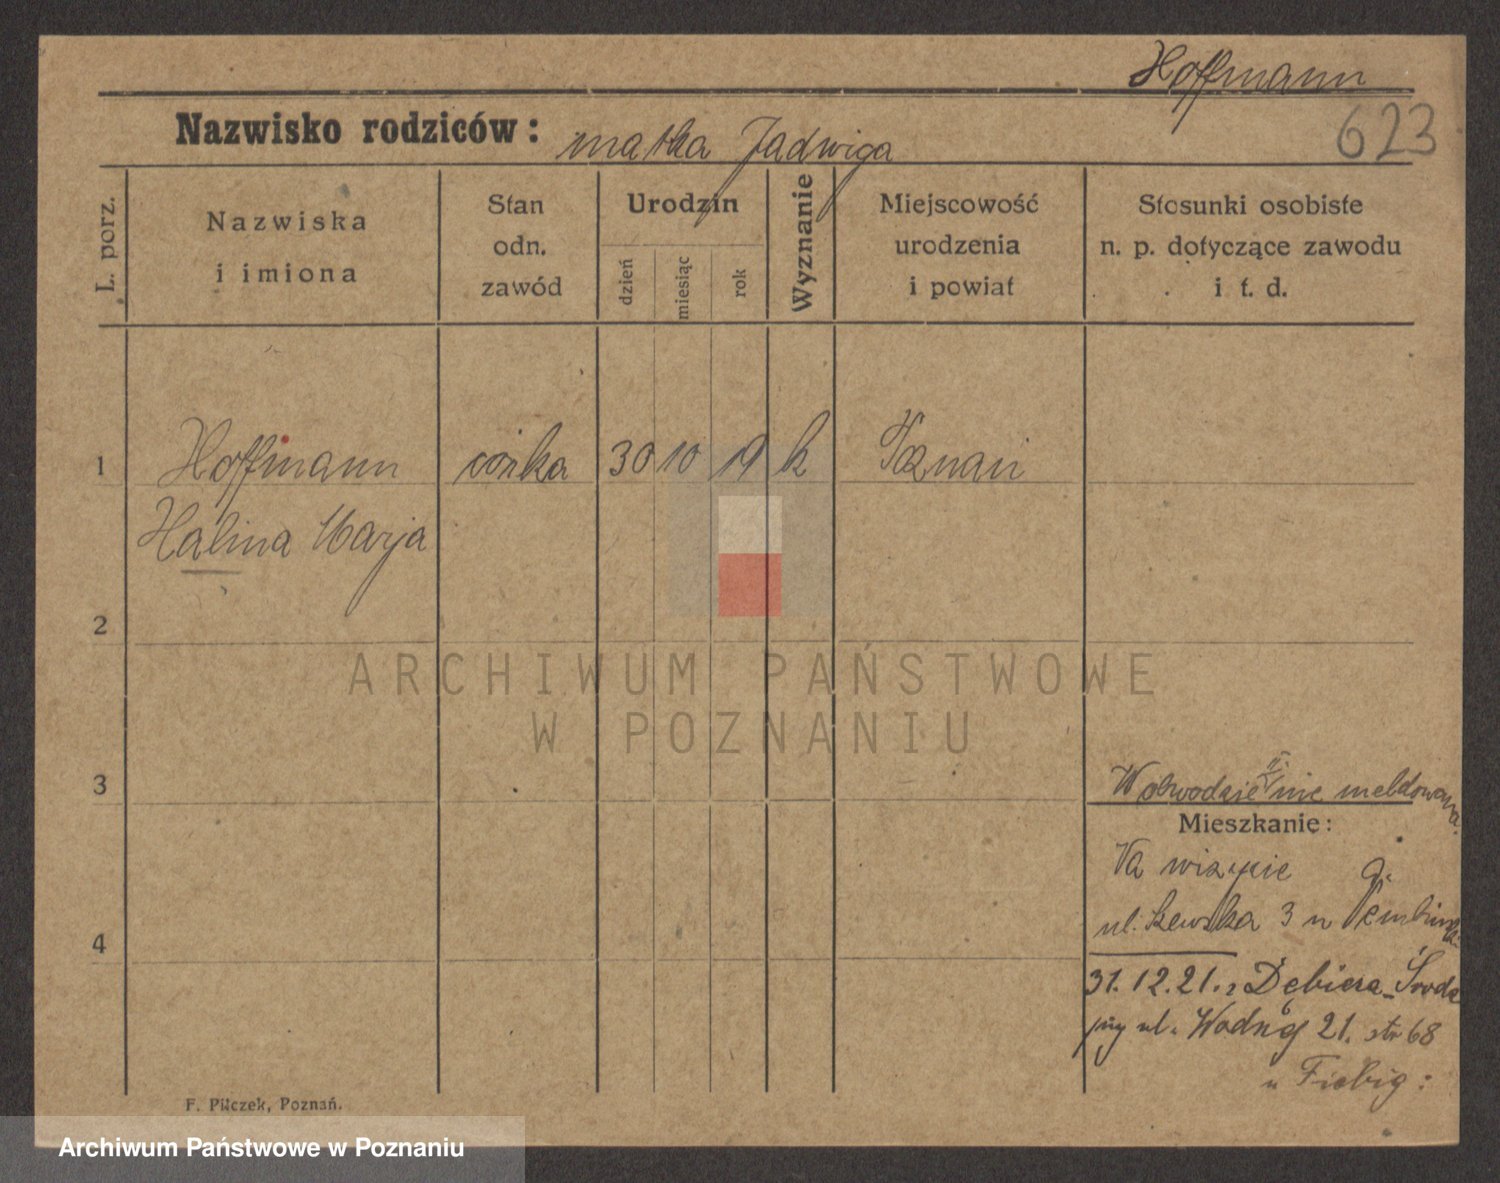 Hoffmann
623
Nazwisko rodziców: matka Jadwiga
L. porz.
Nazwiska
i imiona
Stan
odn.
zawód
Urodzin
dzień
miesiąc
rok
Wyznanie
Miejscowość
urodzenia
i powiat
Stosunki osobiste
n. p. dotyczące zawodu
i t. d.
1 Hoffmann córka 30 10 19 k Poznań
Halina Marja
2
ARCHIWUM PAŃSTWOWE
W POZNANIU
3
W obwodzie nie meldowana.
Mieszkanie:
Na wizycie
ul. 3 u
4
31.12.21. z Dębicza - Środa
przy ul. Wodnej 21. str 68
u Fiebig:
F. Pilczek, Poznań.
Archiwum Państwowe w Poznaniu